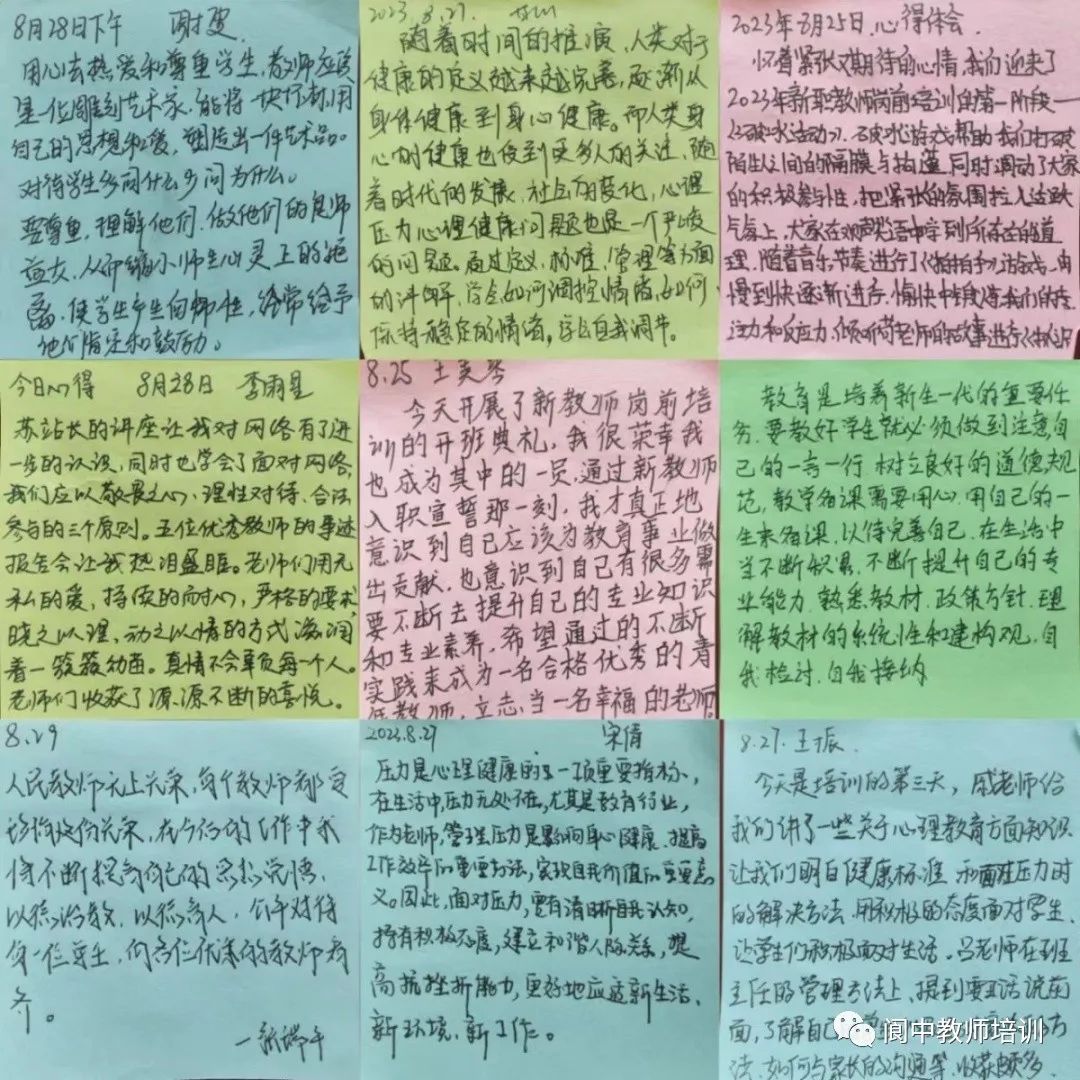 8月28日下午
用心去热爱和尊重学生,教师应该
是一位雕刻艺术家,能将一块坏料,用
自己的思想和爱,塑造出一件艺术品。
对待学生多问什么少问为什么。
要尊重,理解他们,做他们的良师
益友,从而缩小师生心灵上的距
离,使学生产生向师性,经常给予
他们肯定和鼓励。
2023.8.27.
随着时间的推演,人类对于
健康的定义越来越完善,逐渐从
身体健康到身心健康。而人类身
心的健康也受到更多人的关注,随
着时代的发展,社会的变化,心理
压力心理健康问题也是一个严峻
的问题。通过定义,标准,管理等方面
的讲解,学会如何调控情绪,如何
保持稳定的情绪,学会自我调节。
2023年8月25日,心得体会
怀着紧张又期待的心情,我们迎来了
2023年新职教师岗前培训的第一阶段—
《破冰活动》,破冰游戏帮助我们打破
陌生人之间的隔膜与拘谨,同时调动了大家
的积极参与性,把紧张的氛围拉入活跃
气氛上,大家在欢声笑语中学到所存在的道
理,随着音乐节奏进行了《拍拍手》游戏,由
慢到快逐渐进行,愉快中锻炼着我们的专
注力和反应力,倾听苟老师的故事进行《抓
今日心得 8月28日 李雨星
苏站长的讲座让我对网络有了进
一步的认识,同时也学会了面对网络,
我们应以敬畏之心,理性对待,合法
参与的三个原则。五位优秀教师的事迹
报告会让我热泪盈眶。老师们用无
私的爱,持续的耐心,严格的要求,
晓之以理,动之以情的方式滋润
着一簇簇幼苗。真情不会辜负每一个人。
老师们收获了源源不断的喜悦。
8.25 王美琴
今天开展了新教师岗前培
训的开班典礼,我很荣幸我
也成为其中的一员,通过新教师
入职宣誓那一刻,我才真正地
意识到自己应该为教育事业做
出贡献,也意识到自己有很多需
要不断去提升自己的专业知识
和专业素养,希望通过的不断
实践来成为一名合格优秀的青
年教师,立志,当一名幸福的老师
教育是培养新生一代的重要任
务,要教好学生就必须做到注意自
己的一言一行,树立良好的道德规
范,教学备课需要用心,用自己的一
生来备课,以待完善自己,在生活中
当不断积累,不断提升自己的专
业能力,熟悉教材,政策方针,理
解教材的系统性和建构观,自
我检讨,自我接纳
8.29
人民教师无上光荣,每个教师都应
该珍惜这份光荣,在今后的工作中我
将不断提高自己的思想觉悟,
以德治教,以德育人,公平对待
每一位学生,向各位优秀的教师看
齐。
2023.8.27 宋倩
压力是心理健康的一项重要指标,
在生活中,压力无处不在,尤其是教育行业,
作为老师,管理压力是影响身心健康、提高
工作效率的重要方法,实现自我价值的重要意
义。因此,面对压力,要有清晰自我认知,
持有积极态度,建立和谐人际关系,提
高抗挫折能力,更好地应这新生活、
新环境、新工作。
8.27. 王振
今天是培训的第三天,戚老师给
我们讲了一些关于心理教育方面知识
让我们明白健康标准和面对压力时
的解决方法,用积极的态度面对学生,
让学生们积极面对生活。吕老师在班
主任的管理方法上,提到要把话说在
面,了解自己
法,如何与家长的沟通等,收获颇多.
阆中教师培训